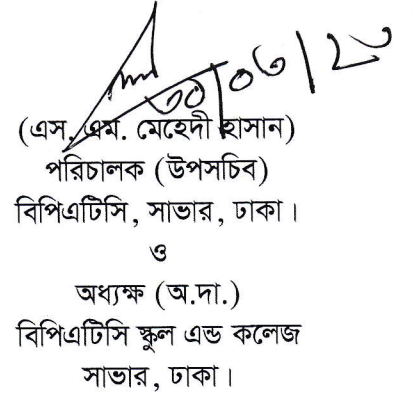 ৩০/০৬/২০
(এস, এম. মেহেদী হাসান)
পরিচালক (উপসচিব)
বিপিএটিসি, সাভার, ঢাকা।
ও
অধ্যক্ষ (অ.দা.)
বিপিএটিসি স্কুল এন্ড কলেজ
সাভার, ঢাকা।